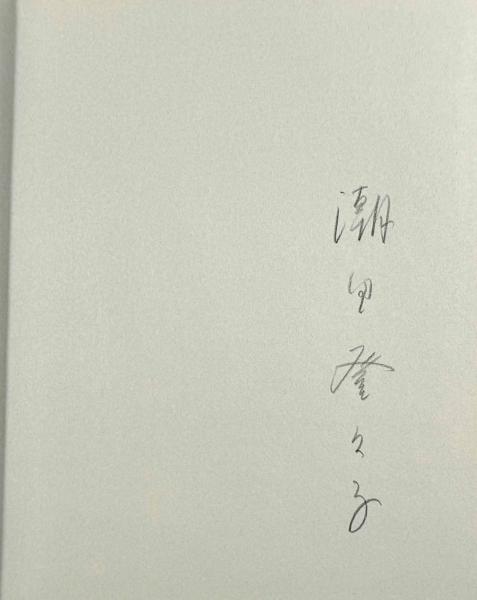 潮田登久子